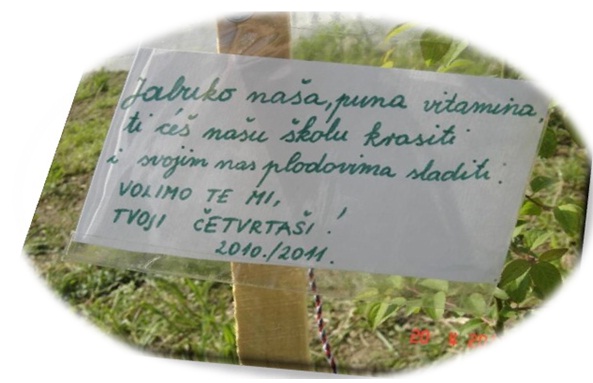 Jabuko naša, puna vitamina,
ti ćeš našu školu krasiti
i svojim nas plodovima sladiti.
VOLIMO TE MI,
TVOJI ČETVRTAŠI!
2010./2011.